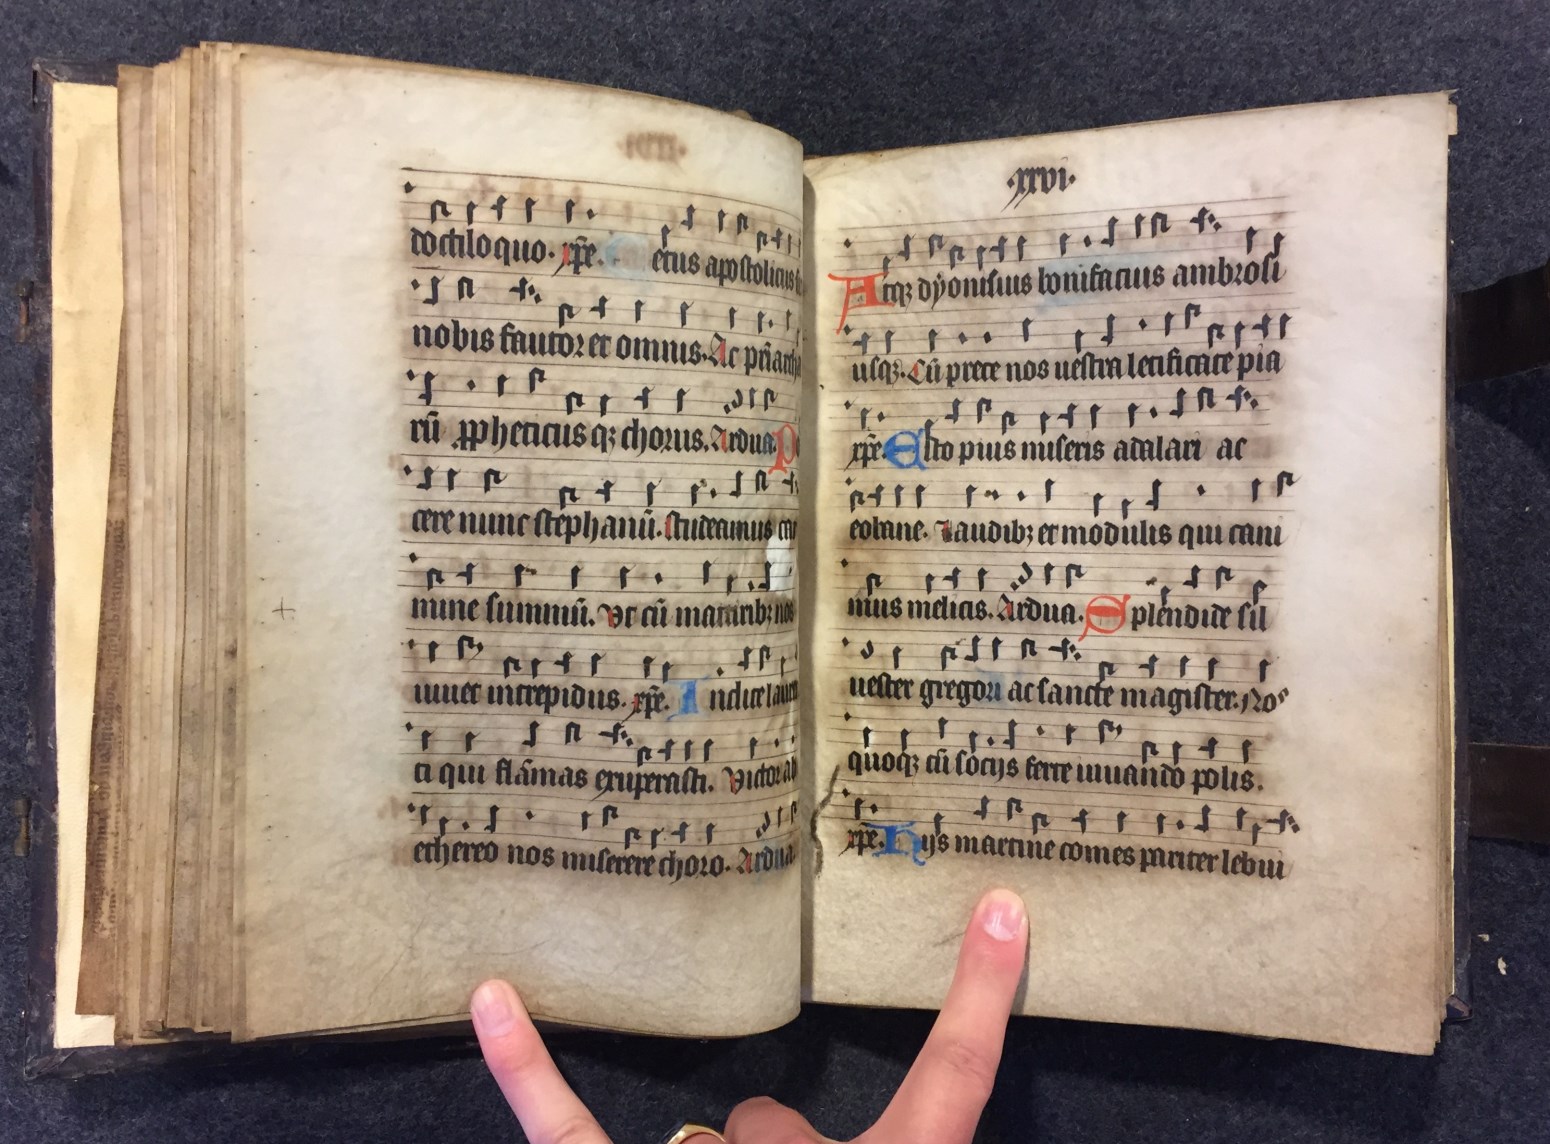 doctiloquo. xp̄e. etus apostolicus
nobis fautor et omnis. Ac pri̅arch
rū ꝓpheticus qꝫ chorus. Ardua. P
cere nunc stephanū. Studeamus car
mine summū. Vt cū martiribꝫ nos
iuuet intrepidus. xp̄e. Indite lauren
ti qui flāmas exuperasti. Victor ab
ethereo nos miserere choro. Ardua.
·xxvi·
Atqꝫ dyonisius bonifacius ambrosi
usqꝫ. Cū prece nos uestra letificate pia
xp̄e. Esto pius miseris atalari ac
eolane. Laudibꝫ et modulis qui cani
mus melicis. Ardua. Splendide sil
uester gregori ac sancte magister. Nos
quoqꝫ cū socijs ferte iuuando polis.
xp̄e. Hijs martine comes pariter lebui